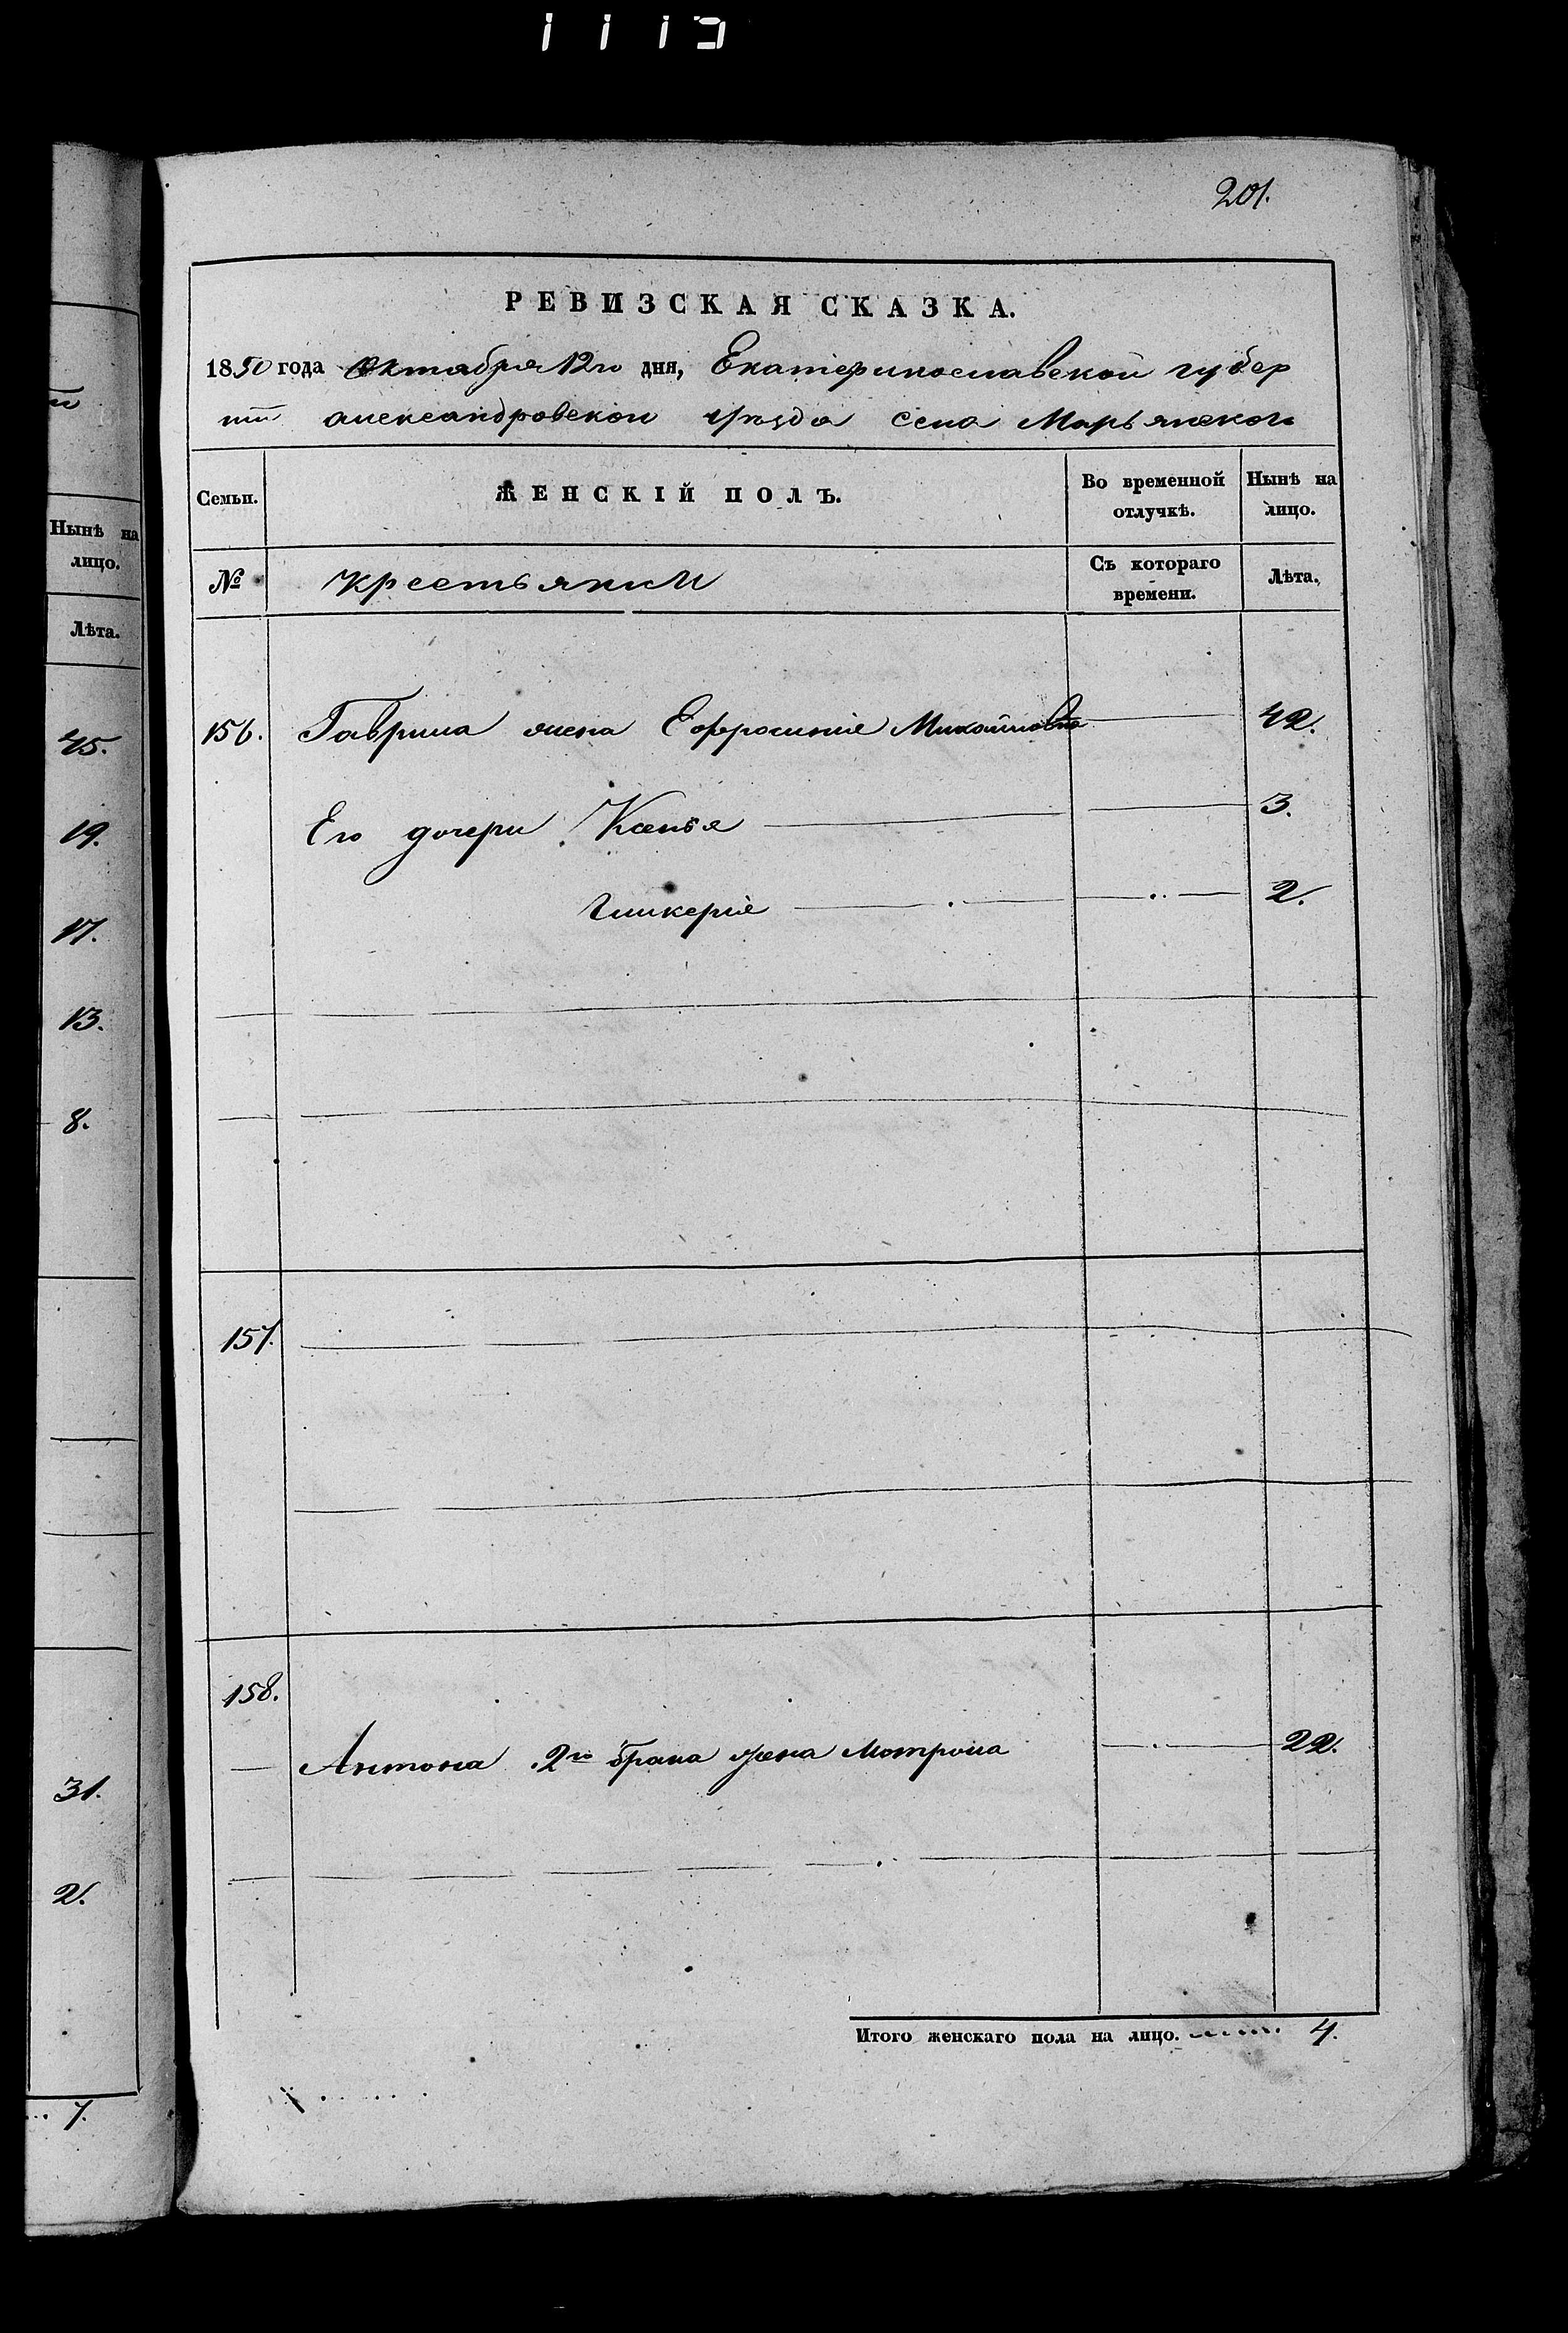 1113
201.
РЕВИЗСКАЯ СКАЗКА.
1850 года Октября 12го дня, Екатеринославской губер
нiи александровскои уѣзда села Марьянского
Семьи. ЖЕНСКІЙ ПОЛЪ. Во временной отлучкѣ. Нынѣ на лицо.
№ Крестьянки Съ котораго времени. Лѣта.
156. Гаврила жена Ефросиние Михайловна 42.
Его дочери Ксенья 3.
Гликерие 2.
157.
158.
Антона 2го брака жена Мотрона 22.
Итого женскаго пола на лицо. 4.
Нынѣ на лицо.
Лѣта.
45.
19.
17.
13.
8.
31.
2.
7.